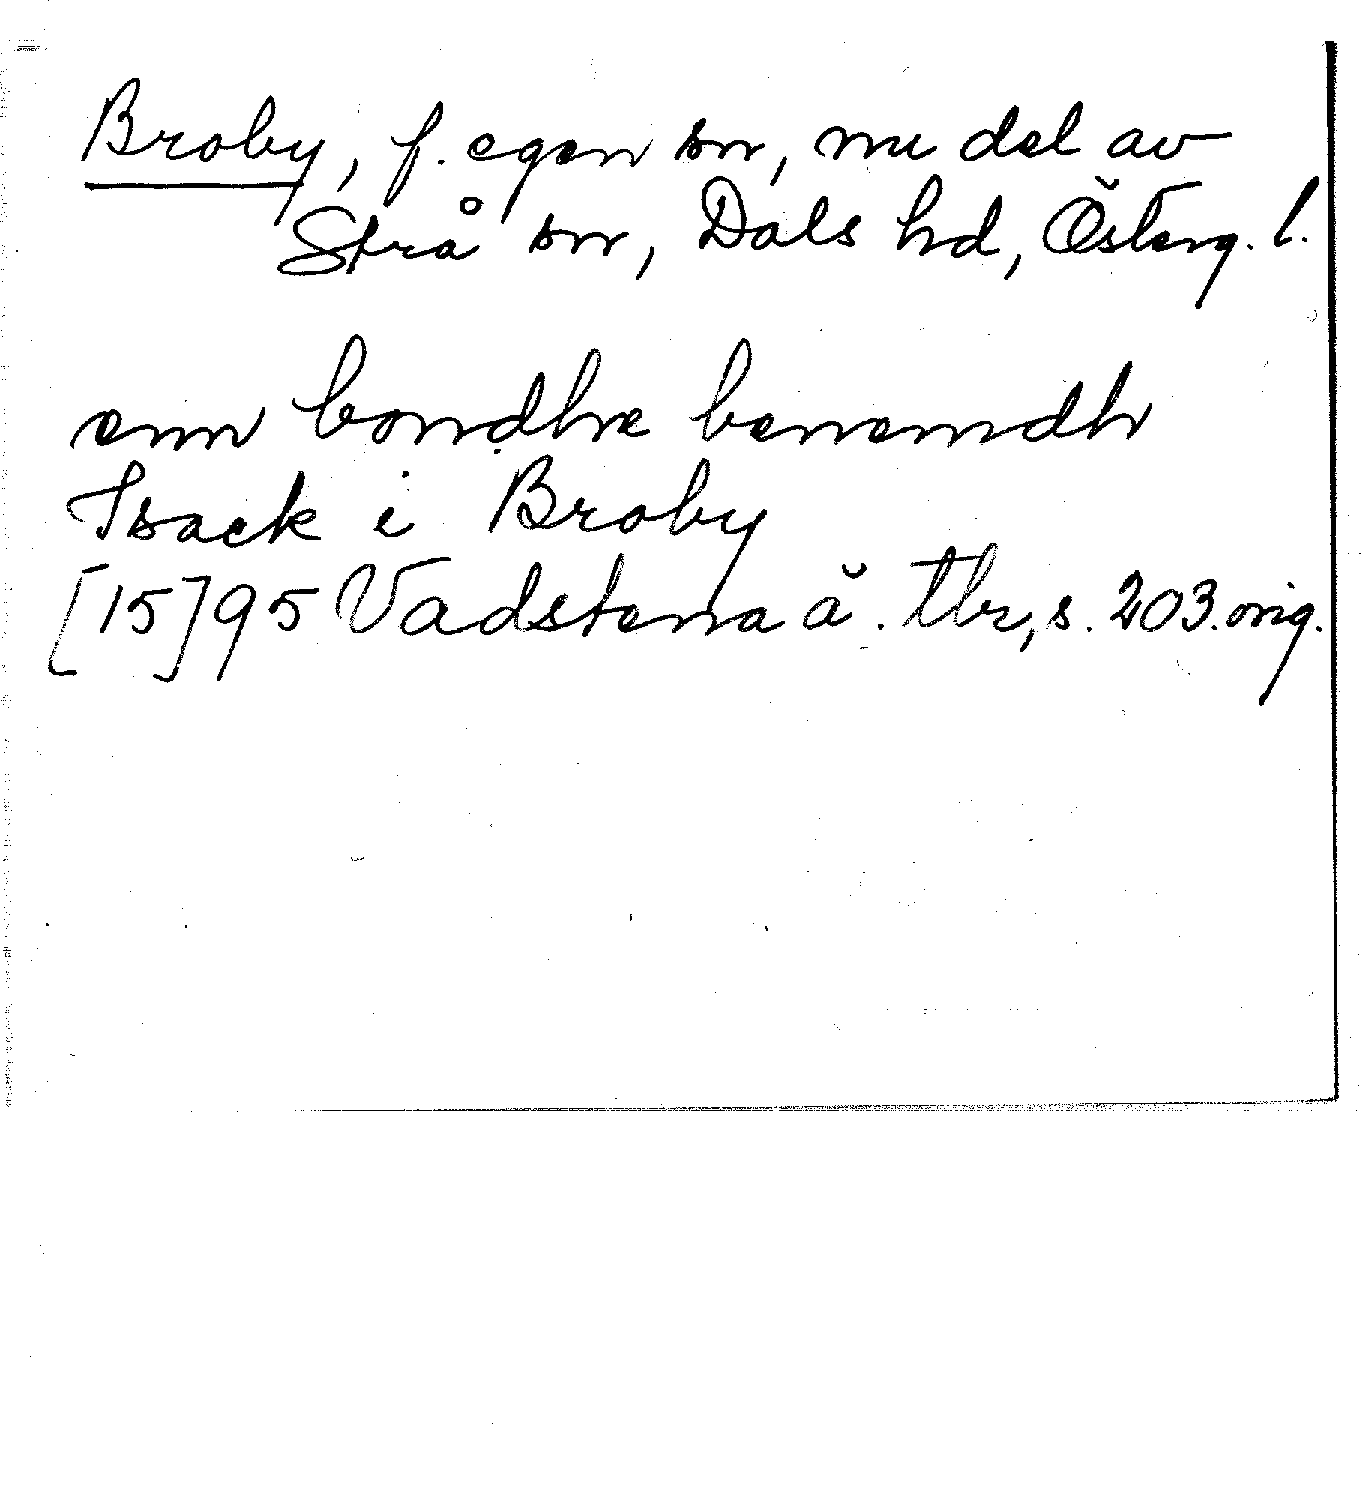 Broby, f. egen sn, nu del av
Strå sn, Dals hd, Österg. l.
enn bondhe benemdh
Isack i Broby
[15]95 Vadstena ä. tbr, s. 203. orig.